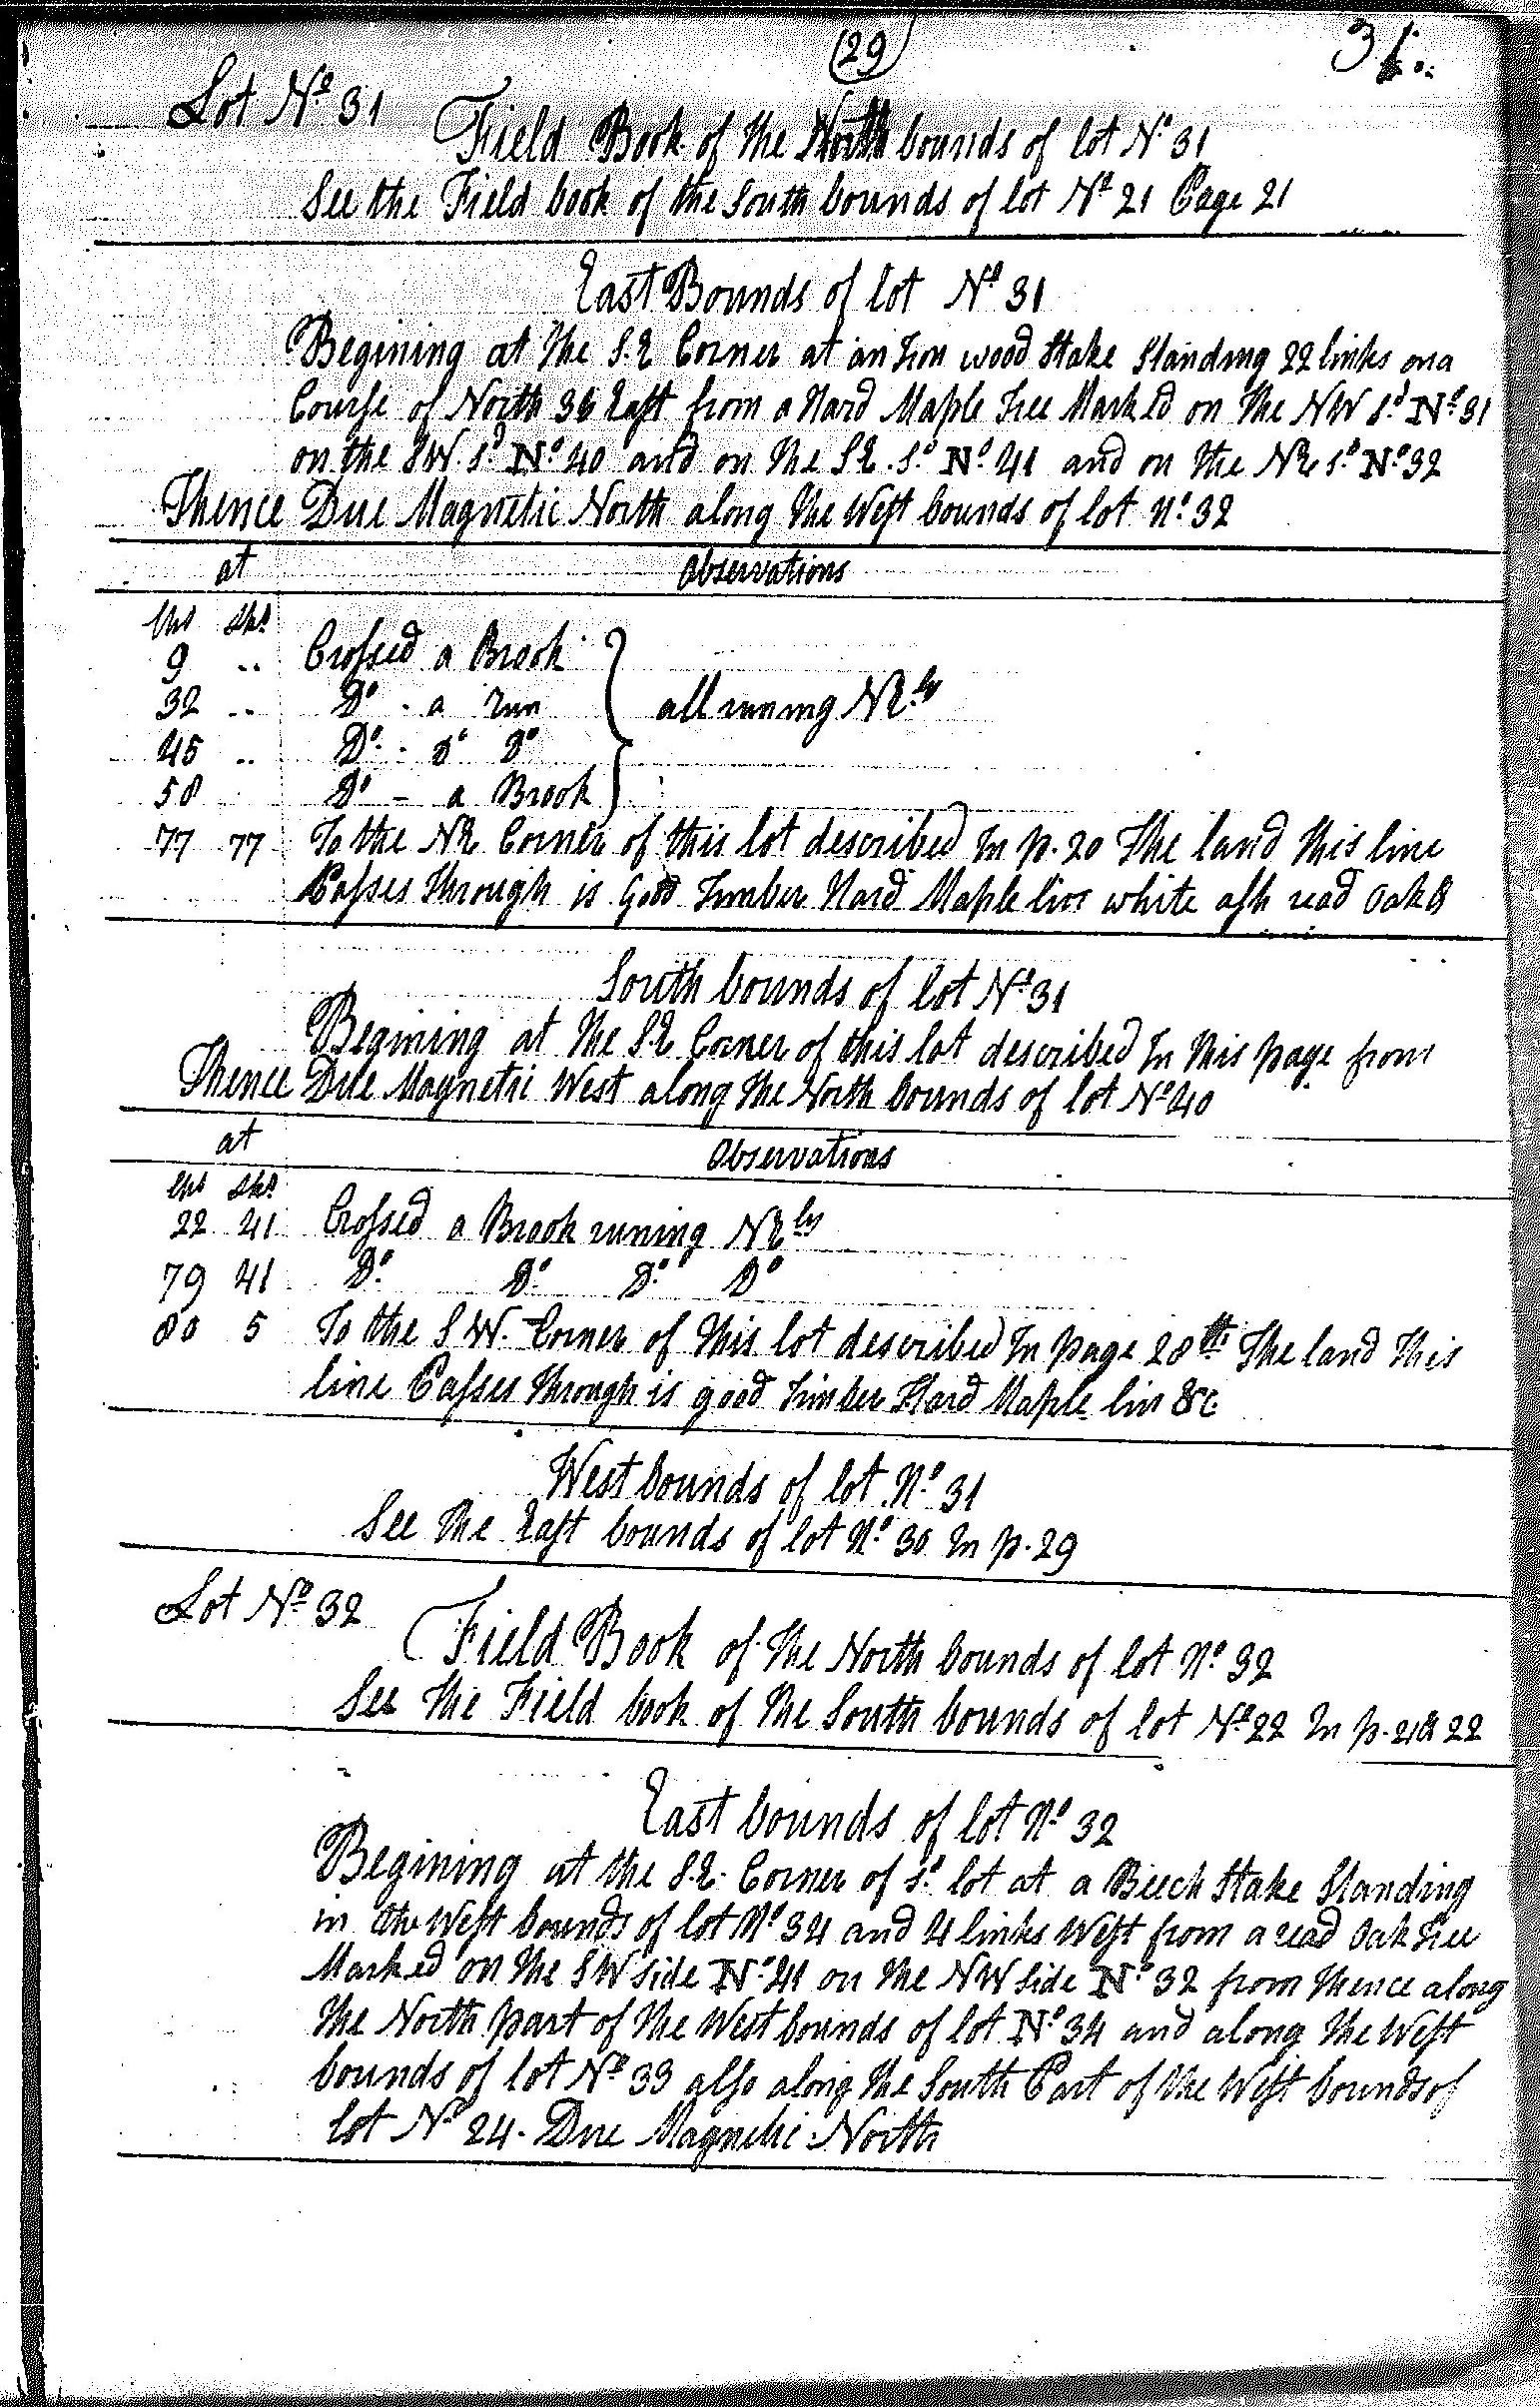 (29)
31.
Lot No. 31
Field Book of the North bounds of lot No. 31
See the Field book of the South bounds of lot No. 21 Page 21
East Bounds of lot No. 31
Begining at the S.E Corner at an Iron wood Stake Standing 22 links on a
Course of North 36 East from a Hard Maple Tree Marked on the NW sd. No. 31
on the SW. sd. No. 40 and on the SE. sd. No. 41 and on the NE sd. No. 32
Thence Due Magnetic North along the West bounds of lot No. 32
at Observations
Chs Lks
9 .. Crossed a Brook
32 .. Do. a run
45 .. Do. do Do
all runing NE.ly
58 Do - a Brook
77 77 To the NE Corner of this lot described In p. 20 The land this line
Passes through is Good Timber Hard Maple linn white ash read Oak &
South bounds of lot No. 31
Begining at the S.E Corner of this lot described In this page from
Thence Due Magnetic West along the North bounds of lot No 40
at Observations
Chs Lks
22 41 Crossed a Brook runing NE ly
79 41 Do. Do. Do. Do
80 5 To the SW. Corner of this lot described In page 28th The land this
line Passes through is good Timber Hard Maple lin &c
West bounds of lot No. 31
See the East bounds of lot No. 30 In p. 29
Lot No. 32
Field Book of the North bounds of lot No. 32
See the Field book of the South bounds of lot No. 22 In p. 21 & 22
East bounds of lot No. 32
Begining at the S.E. Corner of sd. lot at a Beech Stake Standing
in the West bounds of lot No. 34 and 4 links West from a read Oak Tree
Marked on the SW Side No. 41 on the NW Side No. 32 from thence along
the North part of the West bounds of lot No. 34 and along the West
bounds of lot No. 33 also along the South Part of the West bounds of
lot No 24. Due Magnetic North